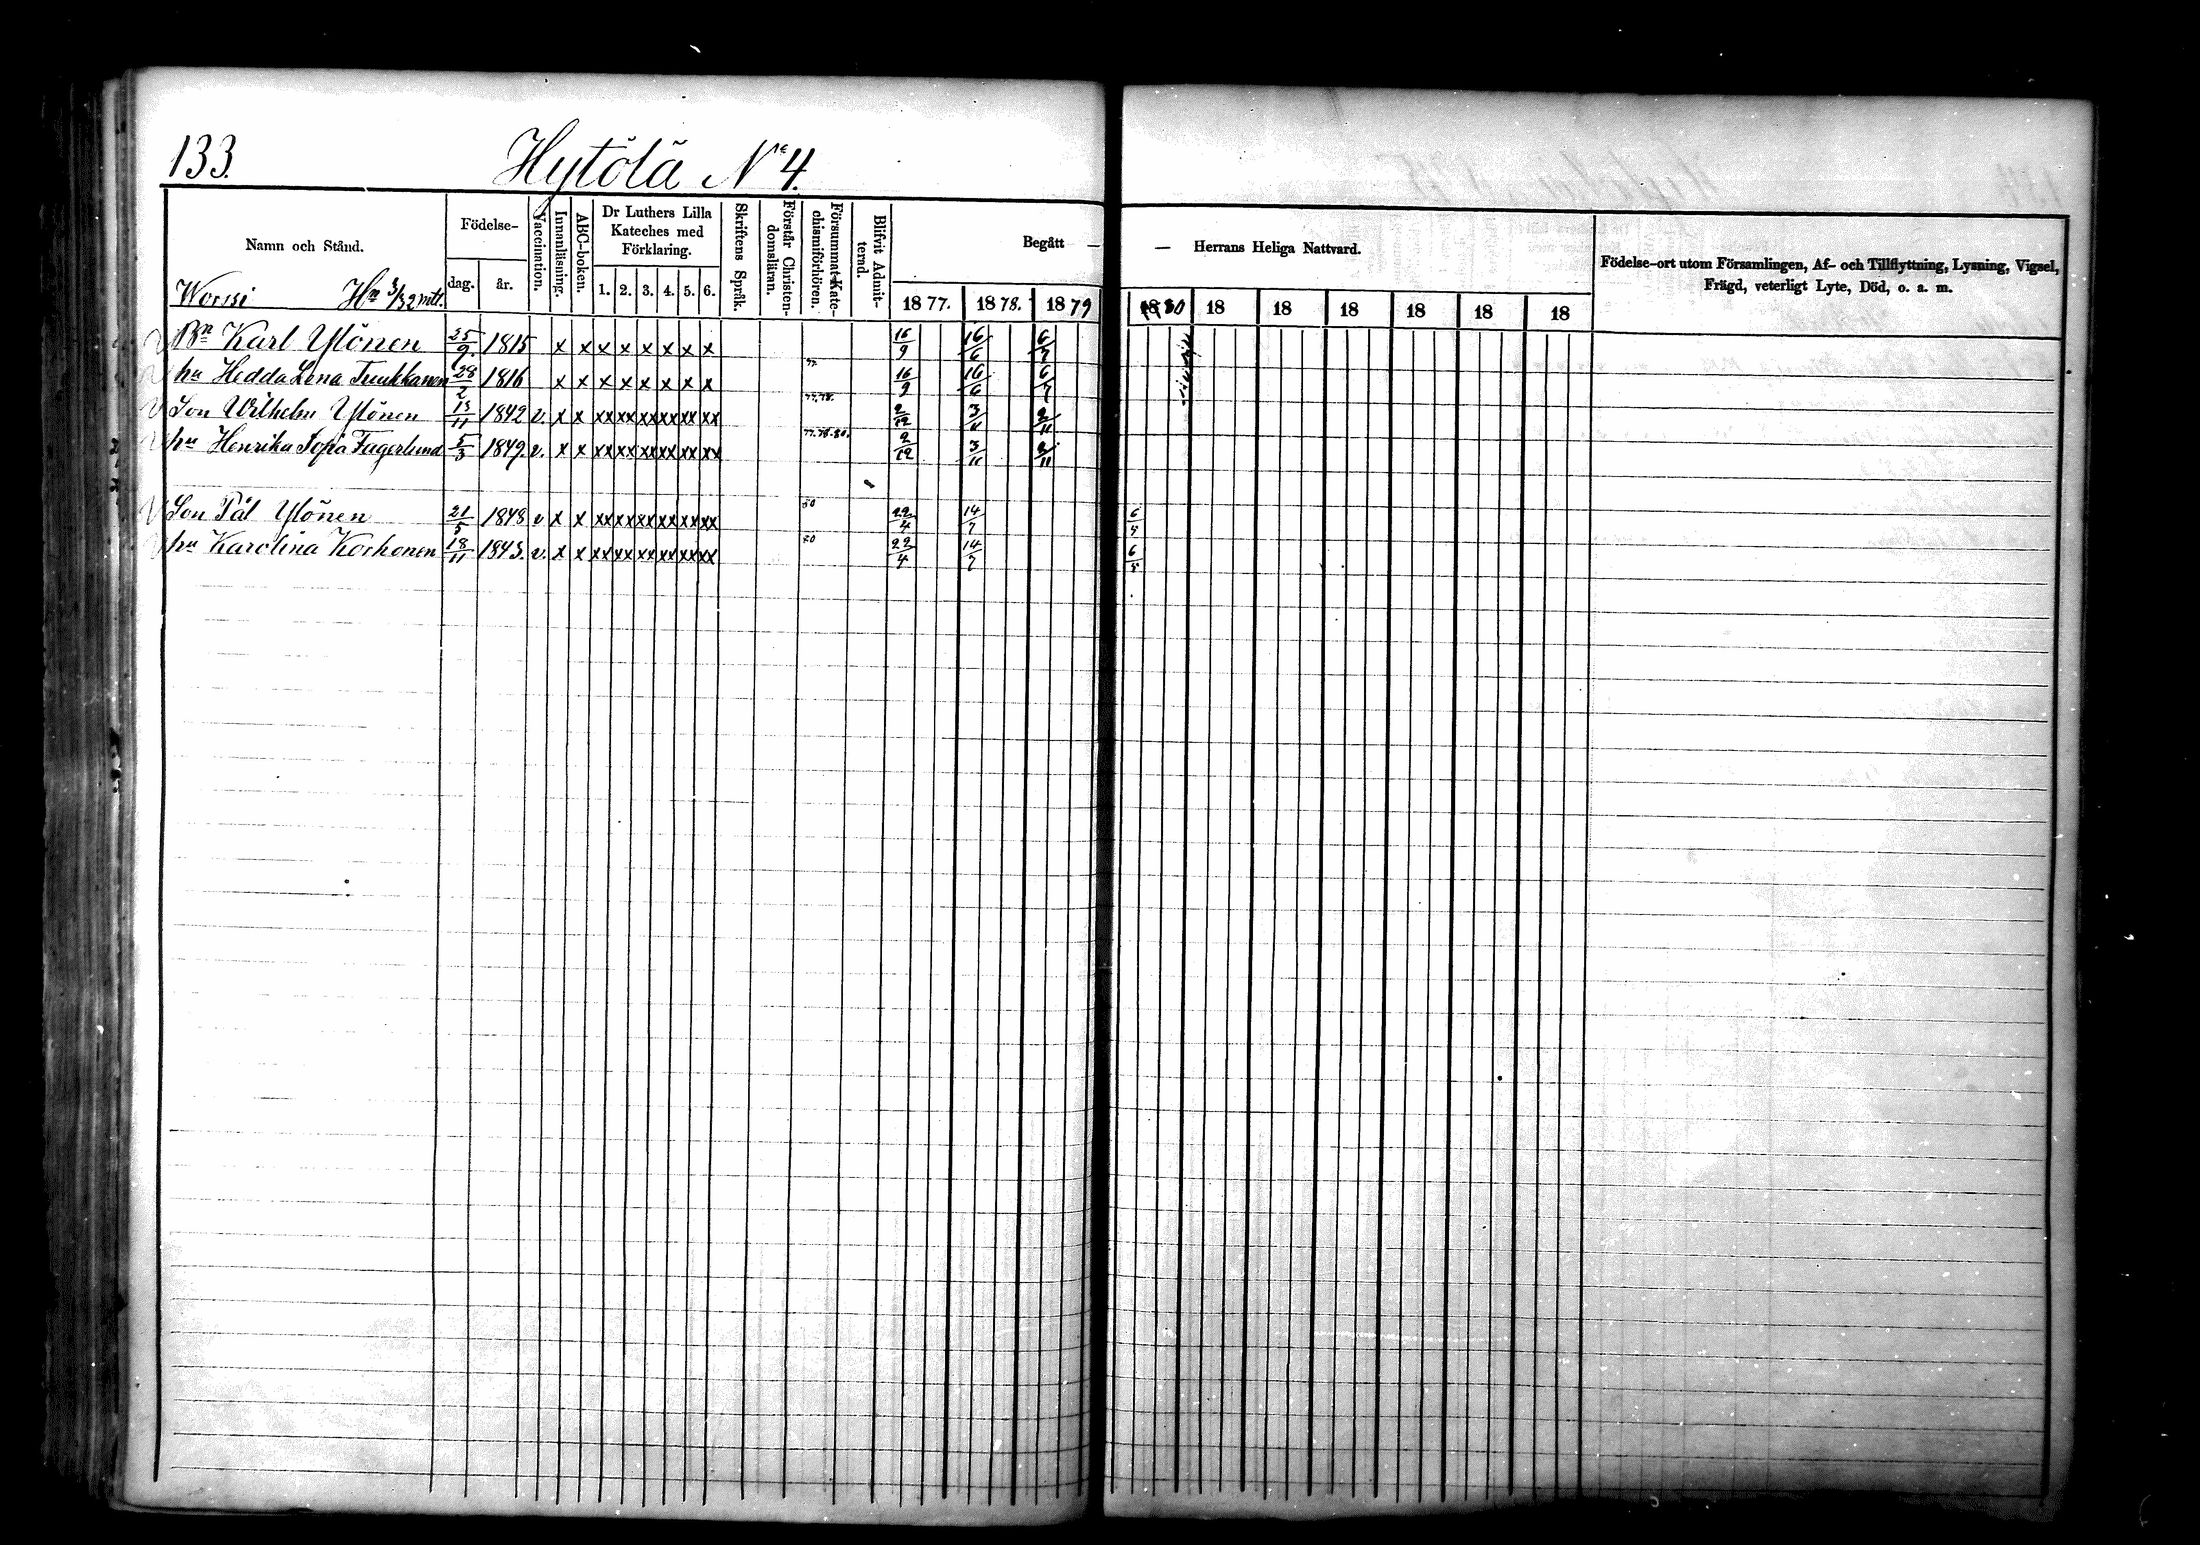 133. Hytölä No 4.
Namn och Stånd.
Födelse-
dag.
år.
Vaccination.
Innanläsning.
ABC-boken.
Dr Luthers Lilla
Kateches med
Förklaring.
1. 2. 3. 4. 5. 6.
Skriftens Språk.
Förstår Christen-
domsläran.
Försummat Kate-
chismiförhören.
Blifvit Admit-
terad.
Begått — — Herrans Heliga Nattvard.
1877. 1878. 1879 1880 18 18 18 18 18 18
Födelse-ort utom Församlingen, Af- och Tillflyttning, Lysning, Vigsel,
Frägd, veterligt Lyte, Död, o. a. m.
Worssi Hn 3/32 mtl.
Bn Karl Ylönen 25/9 1815 x x x x x x x x 16/9 16/6 6/7
hu Hedda Lena Tuukkanen 28/2 1816 x x x x x x x x 77 16/9 16/6 6/7
Son Wilhelm Ylönen 13/11 1842 v. x x xx xx xx xx xx xx 77.78. 2/12 3/11 2/11
hu Henrika Sofia Fagerlund 5/3 1849. v. x x xx xx xx xx xx xx 77.78.80. 2/12 3/11 2/11
Son Pål Ylönen 21/5 1848 v x x xx xx xx xx xx xx 80 22/4 14/7
hu Karolina Korhonen 18/11 1843. v. x x xx xx xx xx xx xx 80 22/4 14/7